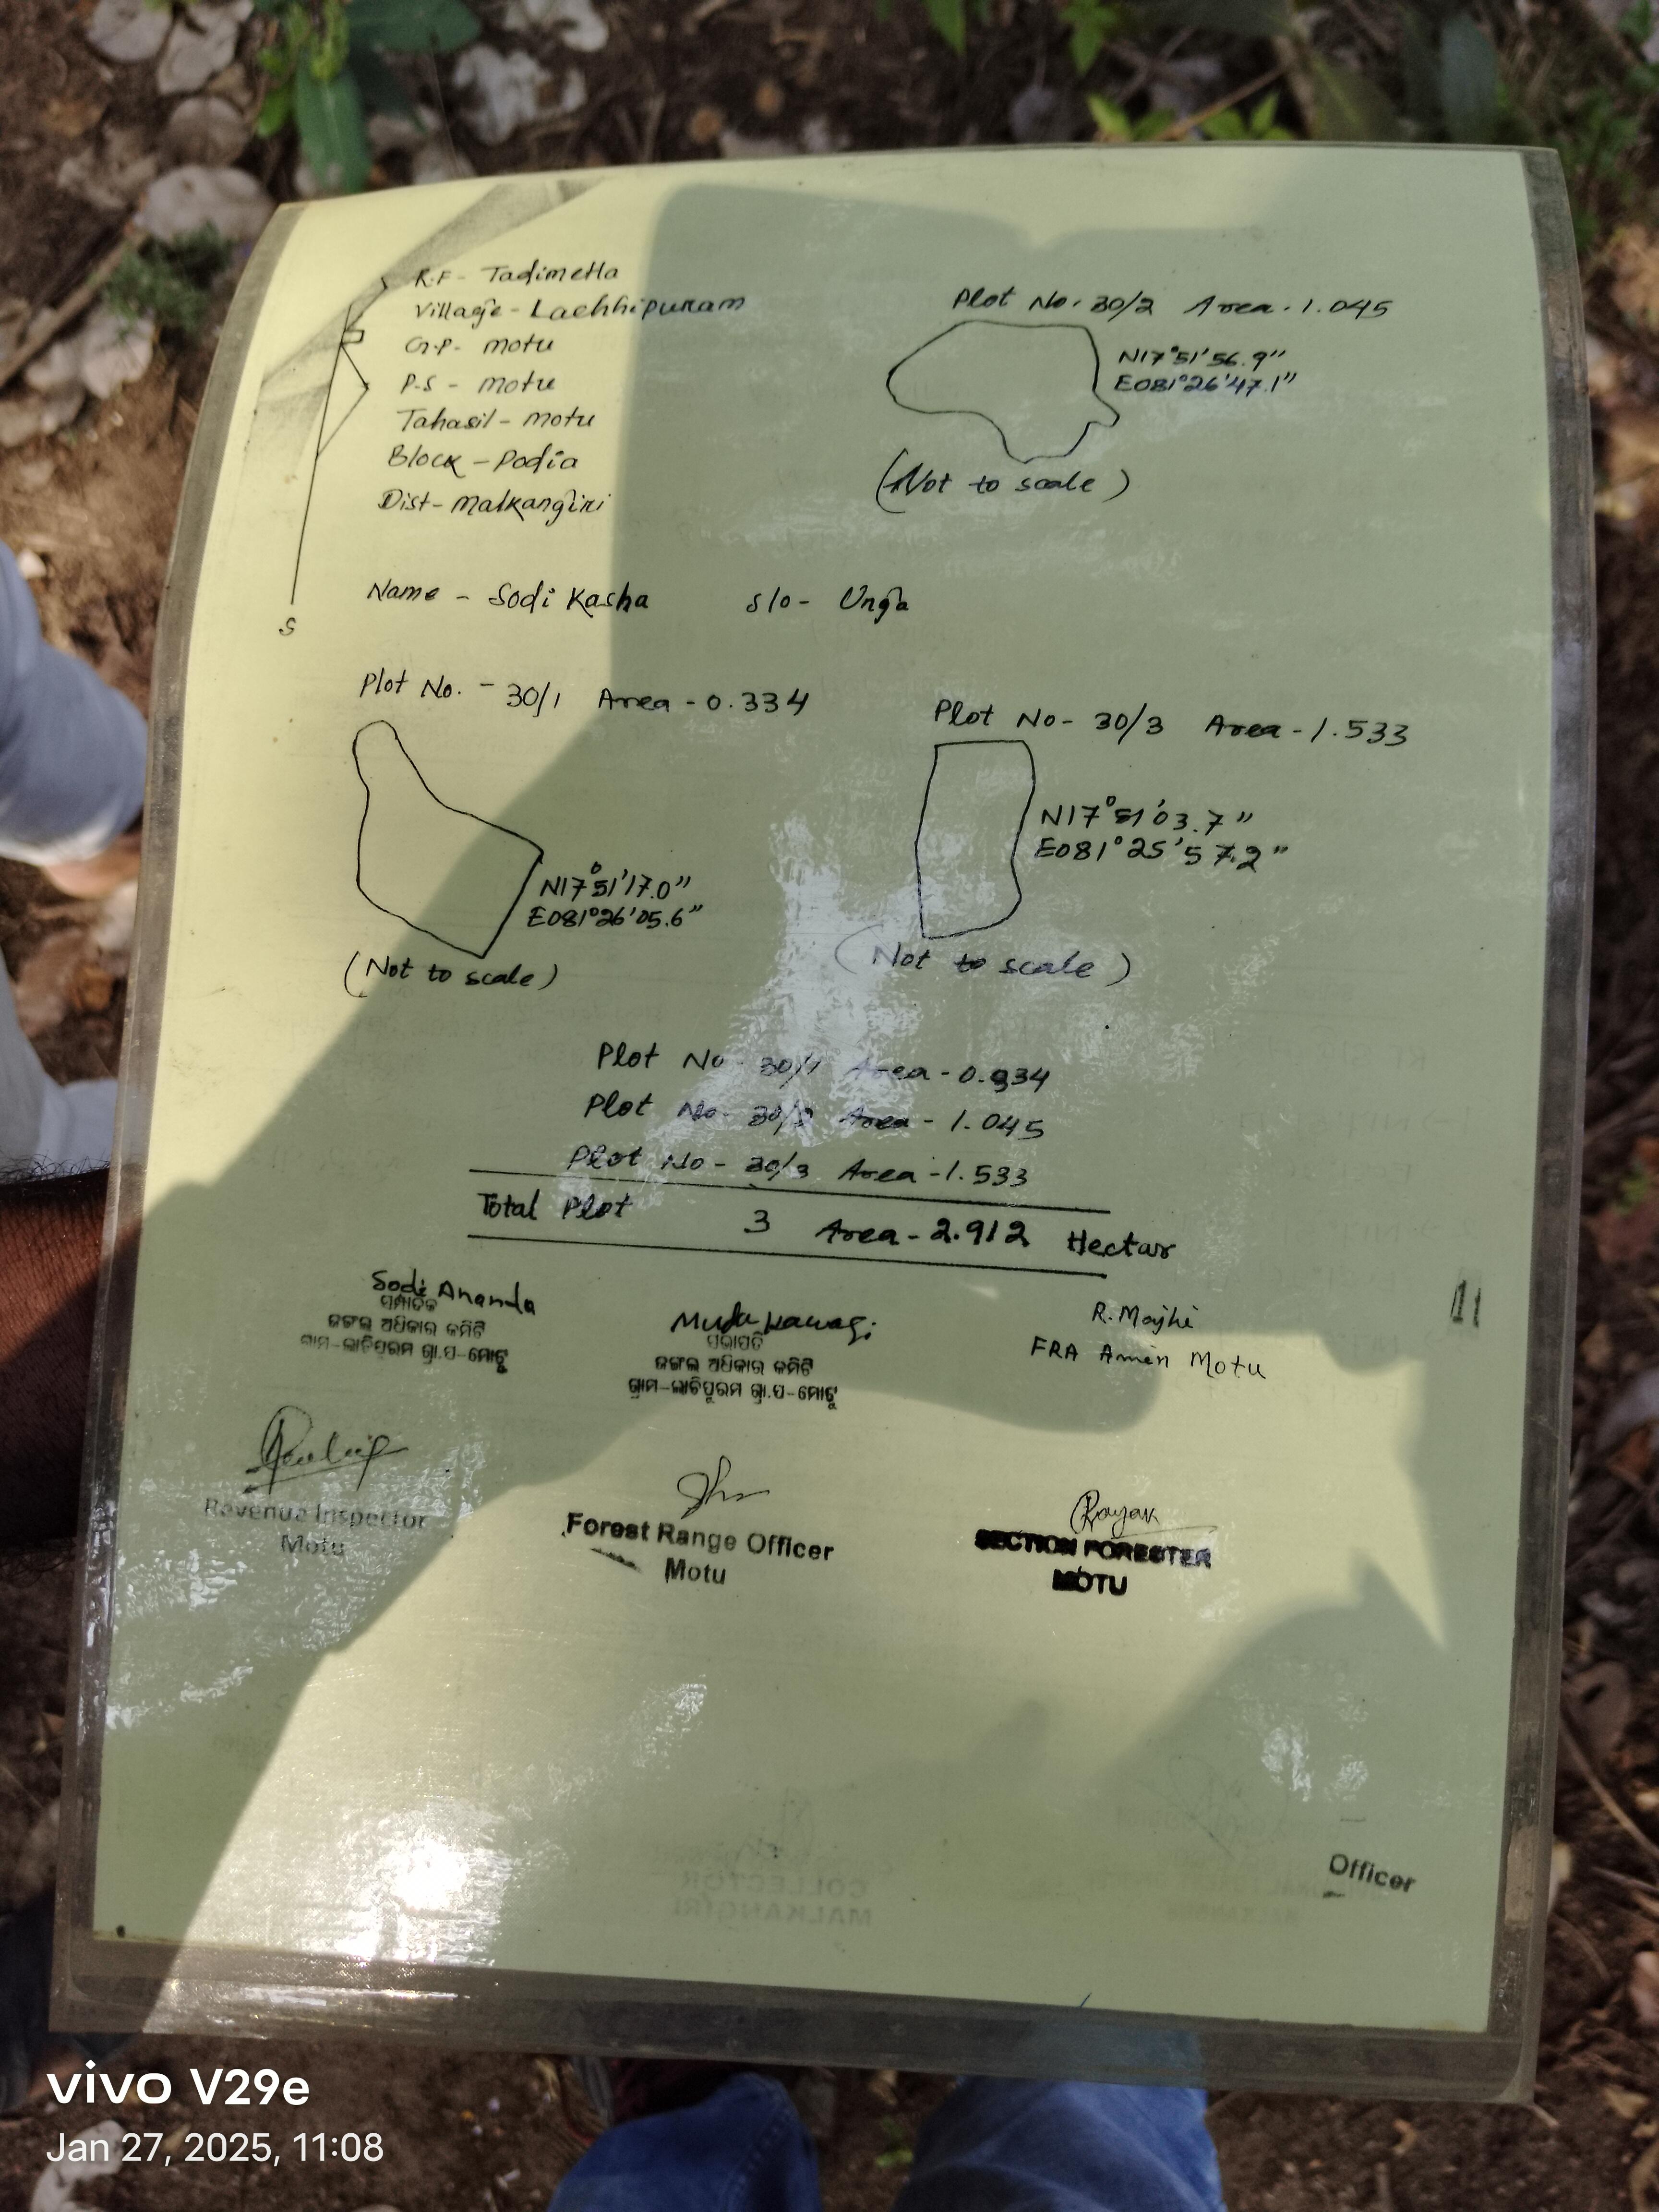 R.F - Tadimetla
Village - Lachhipuram
G.P - motu
P.S - motu
Tahasil - motu
Block - Podia
Dist - Malkangiri
S
Plot No. 30/2 Area - 1.045
N17°51'56.9"
E081°26'47.1"
(Not to scale)
Name - Sodi Kasha S/o - Unga
Plot No. - 30/1 Area - 0.334
N17°51'17.0"
E081°26'05.6"
(Not to scale)
Plot No - 30/3 Area - 1.533
N17°51'03.7"
E081°25'57.2"
(Not to scale)
Plot No - 30/1 Area - 0.334
Plot No - 30/2 Area - 1.045
Plot No - 30/3 Area - 1.533
Total Plot 3 Area - 2.912 Hectar
Sodi Ananda
ସମ୍ପାଦକ
ଜଙ୍ଗଲ ଅଧିକାର କମିଟି
ଗ୍ରାମ-ଲାଚିପୁରମ ଗ୍ରା.ପ-ମୋଟୁ
ସଭାପତି
ଜଙ୍ଗଲ ଅଧିକାର କମିଟି
ଗ୍ରାମ-ଲାଚିପୁରମ ଗ୍ରା.ପ-ମୋଟୁ
R. Majhi
FRA Amin Motu
Revenue Inspector
Motu
Forest Range Officer
Motu
SECTION FORESTER
MOTU
COLLECTOR
MALKANGIRI
Officer
vivo V29e
Jan 27, 2025, 11:08